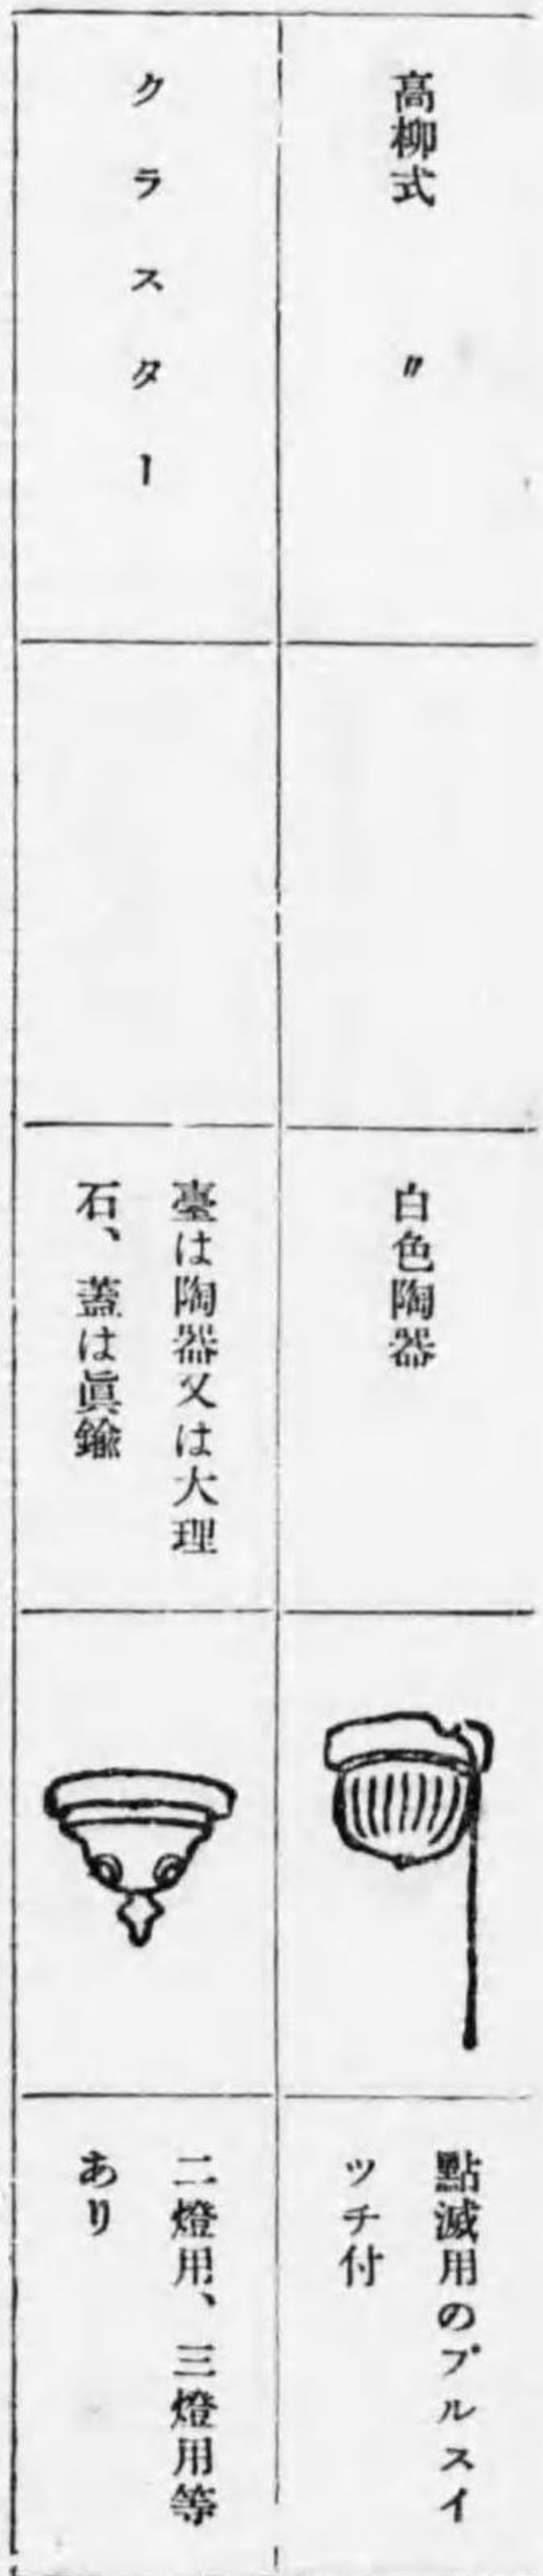 高柳式　〃
白色陶器
點滅用のプルスイ
ツチ付
クラスター
臺は陶器又は大理
石、蓋は眞鍮
二燈用、三燈用等
あり